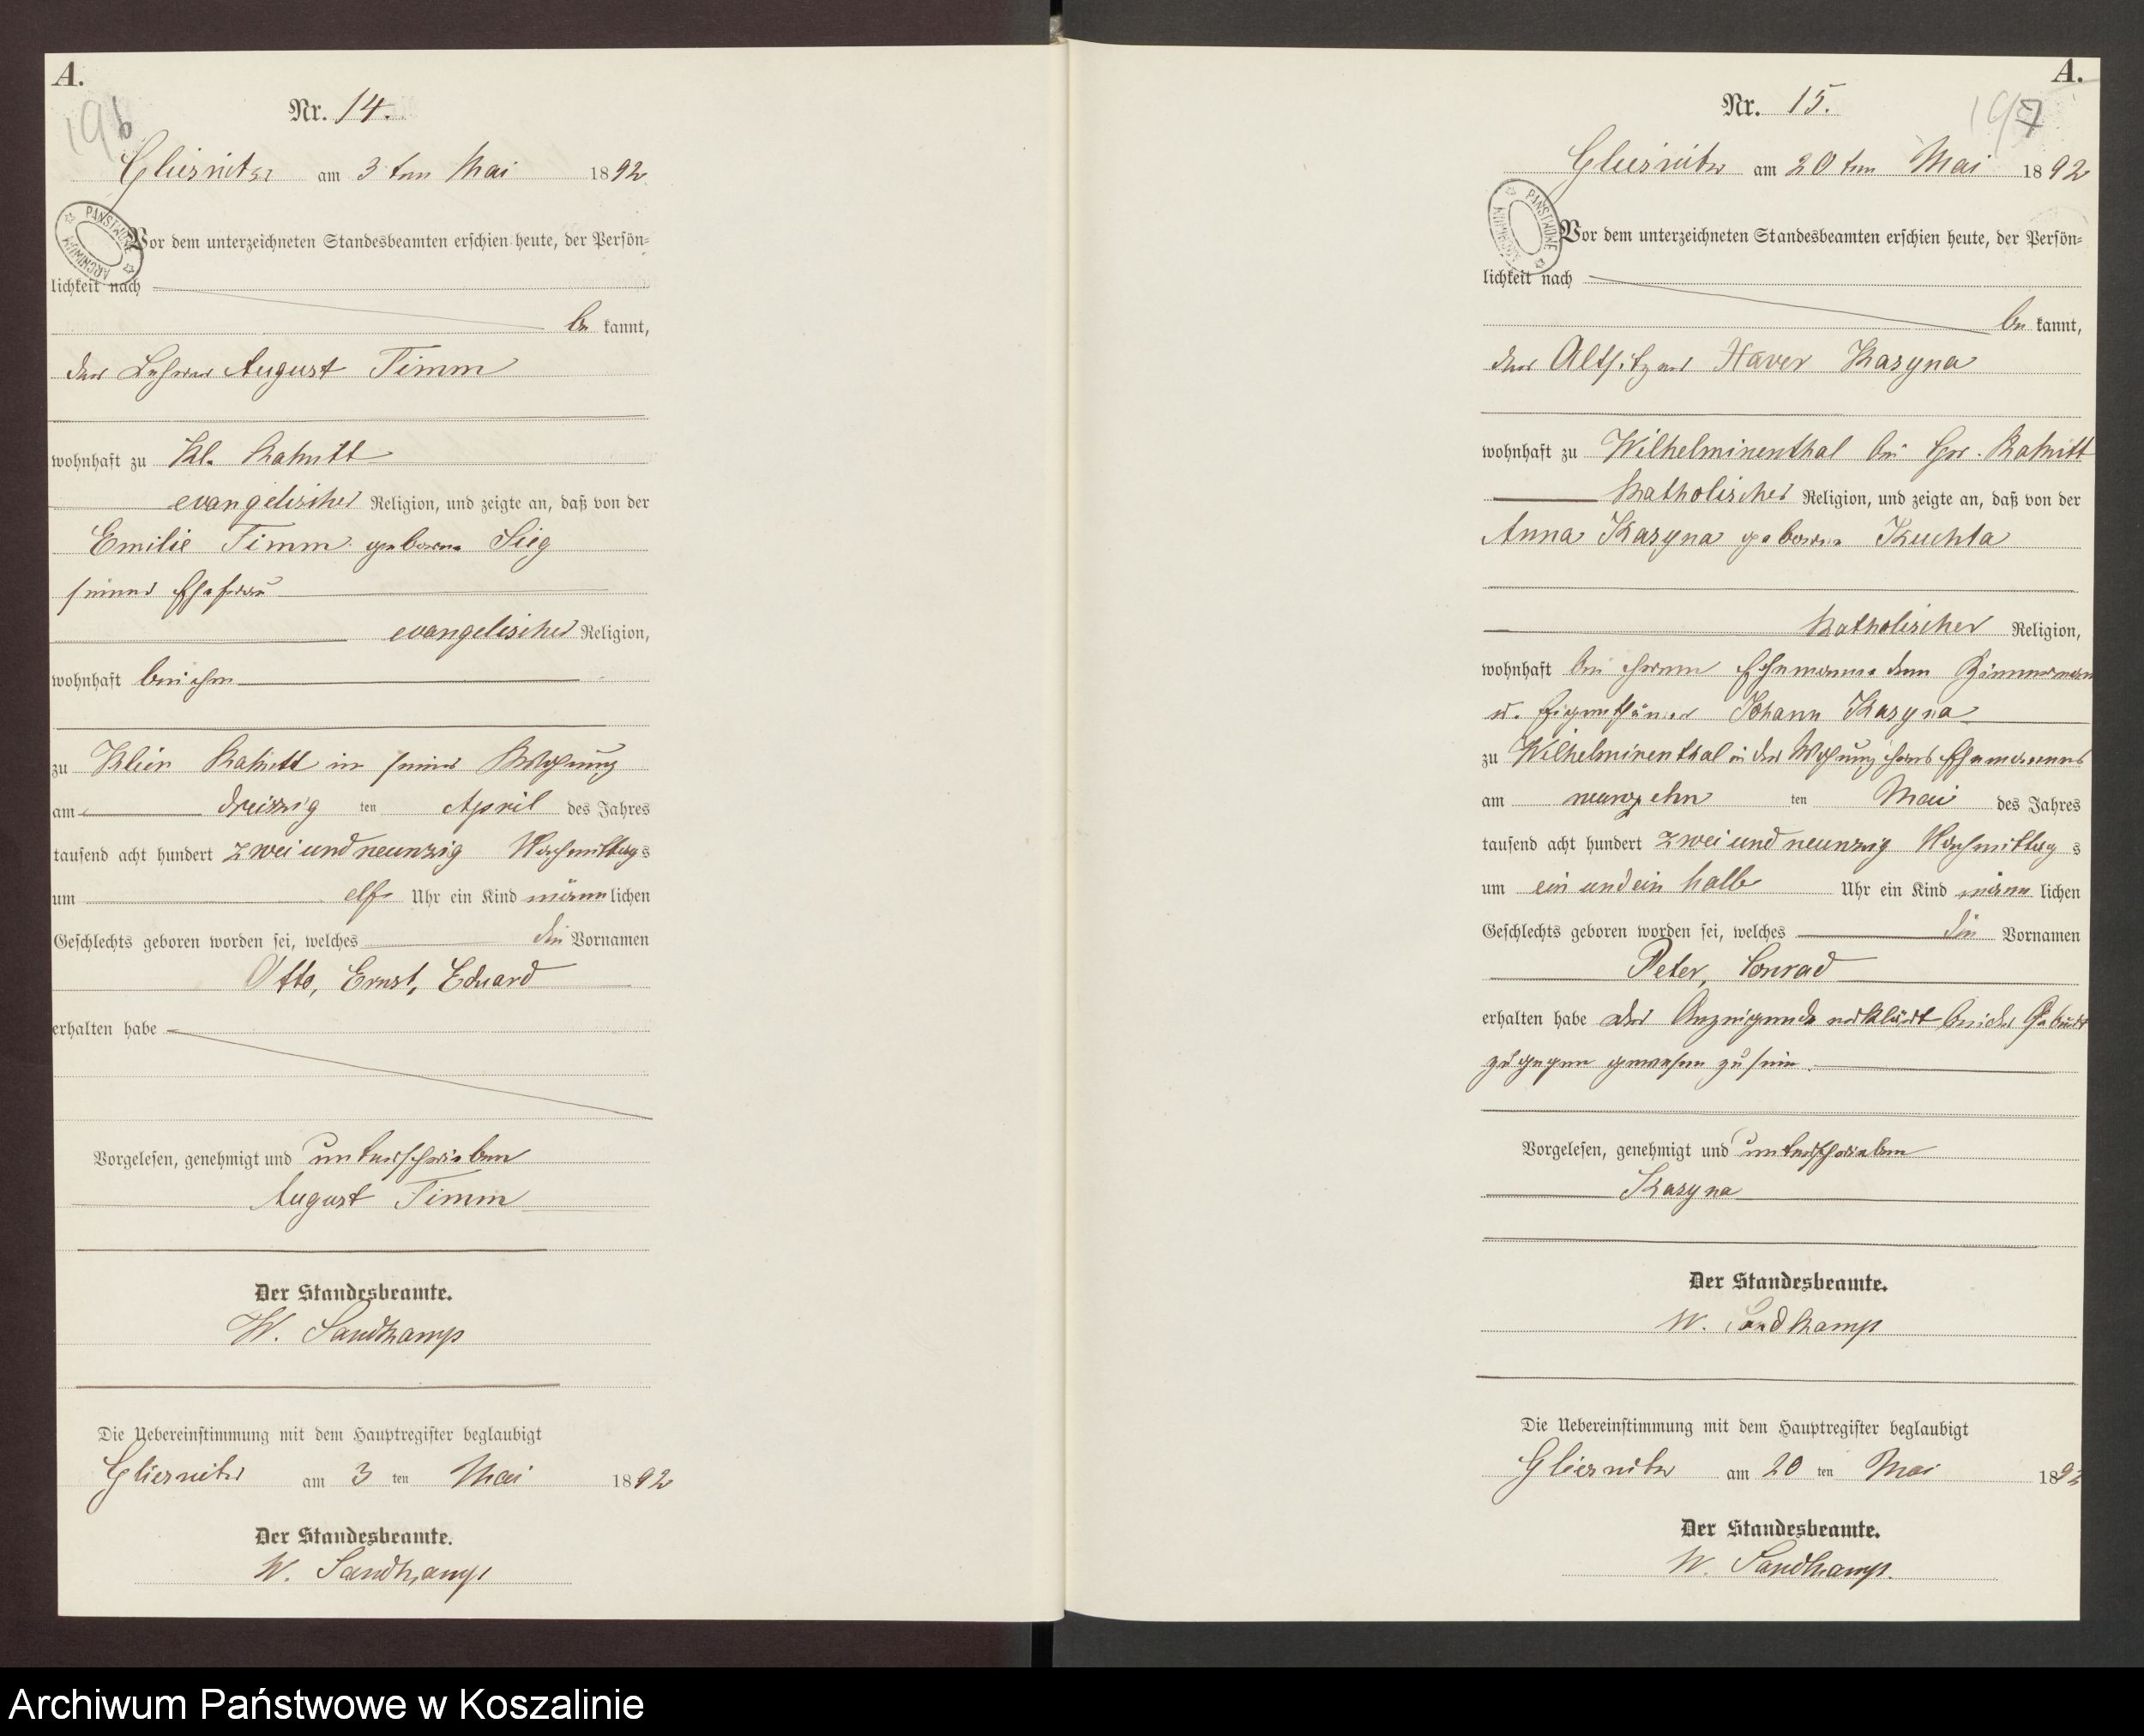 A.
196
Nr. 14.
Gliesnitz am 3ten Mai 1892
PAŃSTWOWE ARCHIWUM
Vor dem unterzeichneten Standesbeamten erschien heute, der Persön=
lichkeit nach
be kannt,
der Lehrer August Timm
wohnhaft zu Kl. Rakitt
evangelischer Religion, und zeigte an, daß von der
Emilie Timm geborne Sieg
seiner Ehefrau
evangelischer Religion,
wohnhaft bei ihm
zu Klein Rakitt in seiner Wohnung
am dreiszig ten April des Jahres
tausend acht hundert zwei und neunzig Nachmittags
um elf Uhr ein Kind männlichen
Geschlechts geboren worden sei, welches die Vornamen
Otto, Ernst, Eduard
erhalten habe
Vorgelesen, genehmigt und unterschrieben
August Timm
Der Standesbeamte.
W. Sandkamp
Die Uebereinstimmung mit dem Hauptregister beglaubigt
Gliesnitz am 3 ten Mai 1892
Der Standesbeamte.
W. Sandkamp
A.
197
Nr. 15.
Gliesnitz am 20ten Mai 1892
PAŃSTWOWE ARCHIWUM
Vor dem unterzeichneten Standesbeamten erschien heute, der Persön=
lichkeit nach
be kannt,
der Altsitzer Xaver Kasyna
wohnhaft zu Wilhelminenthal bei Gr. Rakitt
katholischer Religion, und zeigte an, daß von der
Anna Kasyna geborne Kuchta
katholischer Religion,
wohnhaft bei ihrem Ehemanne dem Zimmermann
u. Eigenthümer Johann Kasyna
zu Wilhelminenthal in der Wohnung ihres Ehemannes
am neunzehn ten Mai des Jahres
tausend acht hundert zwei und neunzig Nachmittag s
um ein und ein halb Uhr ein Kind männ lichen
Geschlechts geboren worden sei, welches die Vornamen
Peter, Conrad
erhalten habe der Anzeigende erklärt bei der Geburt
zugegen gewesen zu sein.
Vorgelesen, genehmigt und unterschrieben
Kasyna
Der Standesbeamte.
W. Sandkamp
Die Uebereinstimmung mit dem Hauptregister beglaubigt
Gliesnitz am 20 ten Mai 1892
Der Standesbeamte.
W. Sandkamp.
Archiwum Państwowe w Koszalinie